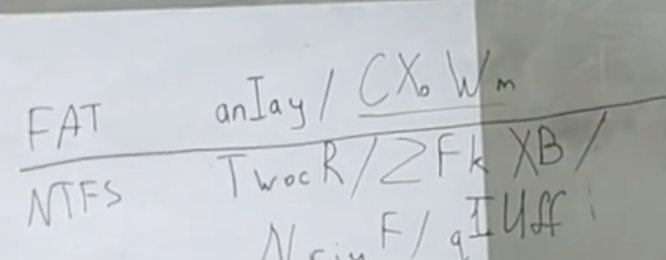 FAT anIay / CXo Wm
NTFS TwocR / ZFk XB /
F / qIUff